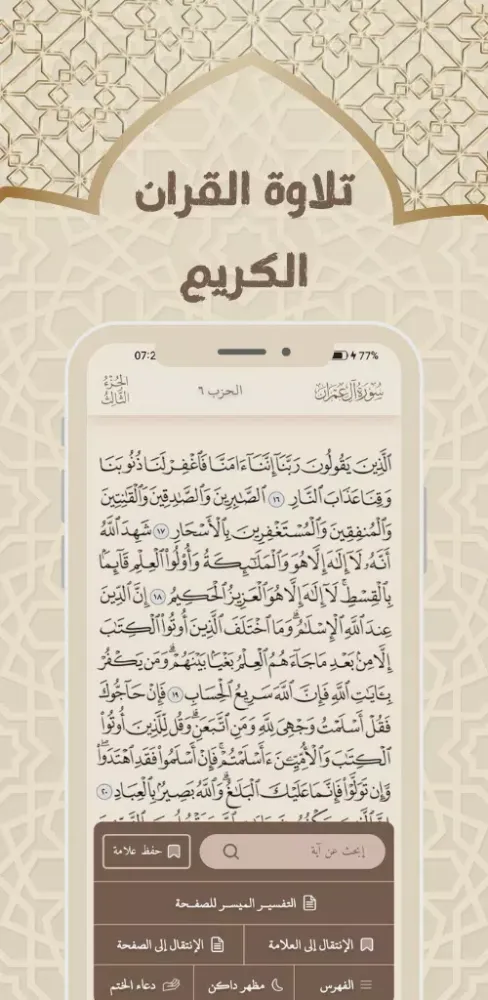 تلاوة القران
الكريم
07:2
77%
سُورَةُ آلِ عِمْرَان
الحزب ٦
الجُزْءُ الثَّالِثُ
ٱلَّذِينَ يَقُولُونَ رَبَّنَآ إِنَّنَآ ءَامَنَّا فَٱغْفِرْ لَنَا ذُنُوبَنَا
وَقِنَا عَذَابَ ٱلنَّارِ ١٦ ٱلصَّٰبِرِينَ وَٱلصَّٰدِقِينَ وَٱلْقَٰنِتِينَ
وَٱلْمُنفِقِينَ وَٱلْمُسْتَغْفِرِينَ بِٱلْأَسْحَارِ ١٧ شَهِدَ ٱللَّهُ
أَنَّهُۥ لَآ إِلَٰهَ إِلَّا هُوَ وَٱلْمَلَٰٓئِكَةُ وَأُو۟لُوا۟ ٱلْعِلْمِ قَآئِمًۢا
بِٱلْقِسْطِۚ لَآ إِلَٰهَ إِلَّا هُوَ ٱلْعَزِيزُ ٱلْحَكِيمُ ١٨ إِنَّ ٱلدِّينَ
عِندَ ٱللَّهِ ٱلْإِسْلَٰمُۗ وَمَا ٱخْتَلَفَ ٱلَّذِينَ أُوتُوا۟ ٱلْكِتَٰبَ
إِلَّا مِنۢ بَعْدِ مَا جَآءَهُمُ ٱلْعِلْمُ بَغْيًۢا بَيْنَهُمْۗ وَمَن يَكْفُرْ
بِـَٔايَٰتِ ٱللَّهِ فَإِنَّ ٱللَّهَ سَرِيعُ ٱلْحِسَابِ ١٩ فَإِنْ حَآجُّوكَ
فَقُلْ أَسْلَمْتُ وَجْهِىَ لِلَّهِ وَمَنِ ٱتَّبَعَنِۗ وَقُل لِّلَّذِينَ أُوتُوا۟
ٱلْكِتَٰبَ وَٱلْأُمِّيِّـۧنَ ءَأَسْلَمْتُمْۚ فَإِنْ أَسْلَمُوا۟ فَقَدِ ٱهْتَدَوا۟ۖ
وَّإِن تَوَلَّوْا۟ فَإِنَّمَا عَلَيْكَ ٱلْبَلَٰغُۗ وَٱللَّهُ بَصِيرٌۢ بِٱلْعِبَادِ ٢٠
إبحث عن آية
حفظ علامة
التفسير الميسر للصفحة
الإنتقال إلى العلامة
الإنتقال إلى الصفحة
الفهرس
مظهر داكن
دعاء الختم